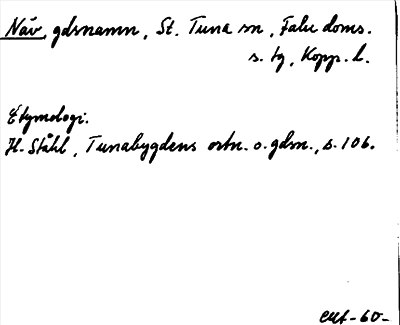 Näv, gdsnamn, St. Tuna sn, Falu doms.
s. tg, Kopp. l.
Etymologi.
H. Ståhl, Tunabygdens ortn. o. gdsn., s. 106.
-60-